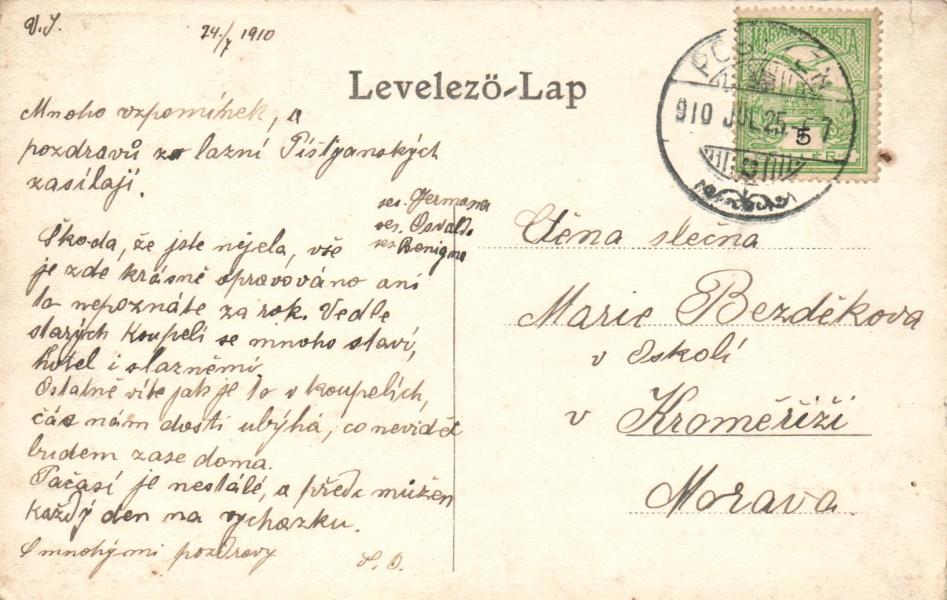 V.J. 24./7 1910
Levelező-Lap
MAGYAR KIR. POSTA
5
910 JUL 25
Mnoho vzpomínek, a
pozdravů ze lazní Píštyanských
zasílají.
ses. Germana
ses. Osvalda
ses. Benigna
Škoda, že jste nejela, vše
je zde krásně opravováno ani
to nepoznáte za rok. Vedle
starých koupelí se mnoho staví,
hotel i slazněmi.
Ostatně víte jak je to v koupelích,
čas nám dosti ubýhá, co nevidět
budem zase doma.
Počasí je nestálé, a přede můžem
každý den na vycházku.
S mnohými pozdravy
S. O.
Ctěna slečna
Marie Bezděkova
v Eskolí
v Kroměříži
Morava.